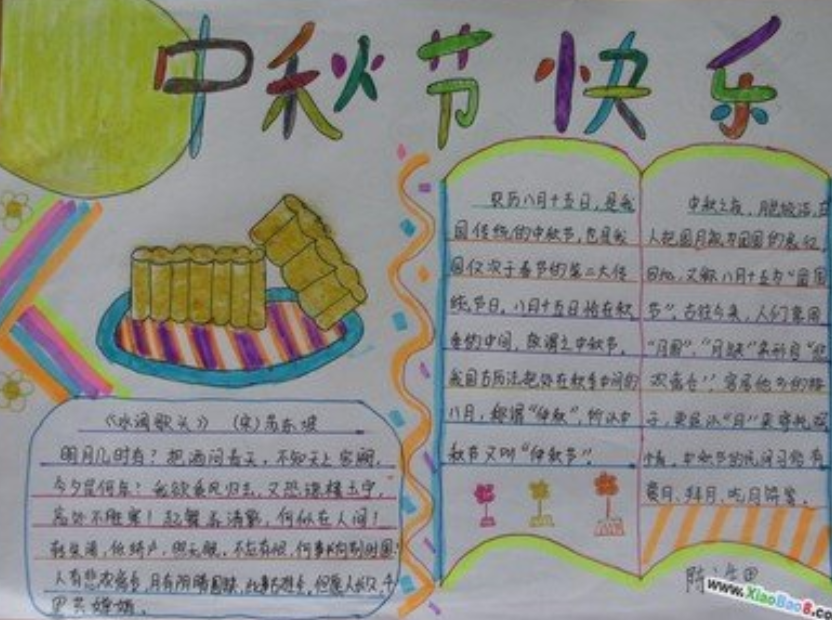 中秋节快乐
《水调歌头》 (宋)苏东坡
明月几时有？把酒问青天，不知天上宫阙，
今夕是何年？我欲乘风归去，又恐琼楼玉宇，
高处不胜寒！起舞弄清影，何似在人间！
转朱阁，低绮户，照无眠，不应有恨，何事长向别时圆？
人有悲欢离合，月有阴晴圆缺，此事古难全，但愿人长久，千
里共婵娟。
农历八月十五日，是我
国传统的中秋节，也是我
国仅次于春节的第二大传
统节日。八月十五日恰在秋
季的中间，故谓之中秋节。
我国古历法把处在秋季中间的
八月，称谓“仲秋”，所以中
秋节又叫“仲秋节”。
中秋之夜，月色皎洁，古
人把圆月视为团圆的象征，
因此，又称八月十五为“团圆
节”。古往今来，人们常用
“月圆”、“月缺”来形容“悲
欢离合”，客居他乡的游
子，更是以“月”来寄托深
情。中秋节的民间习俗有
赏月、拜月、吃月饼等。
陈
www.XiaoBao8.co